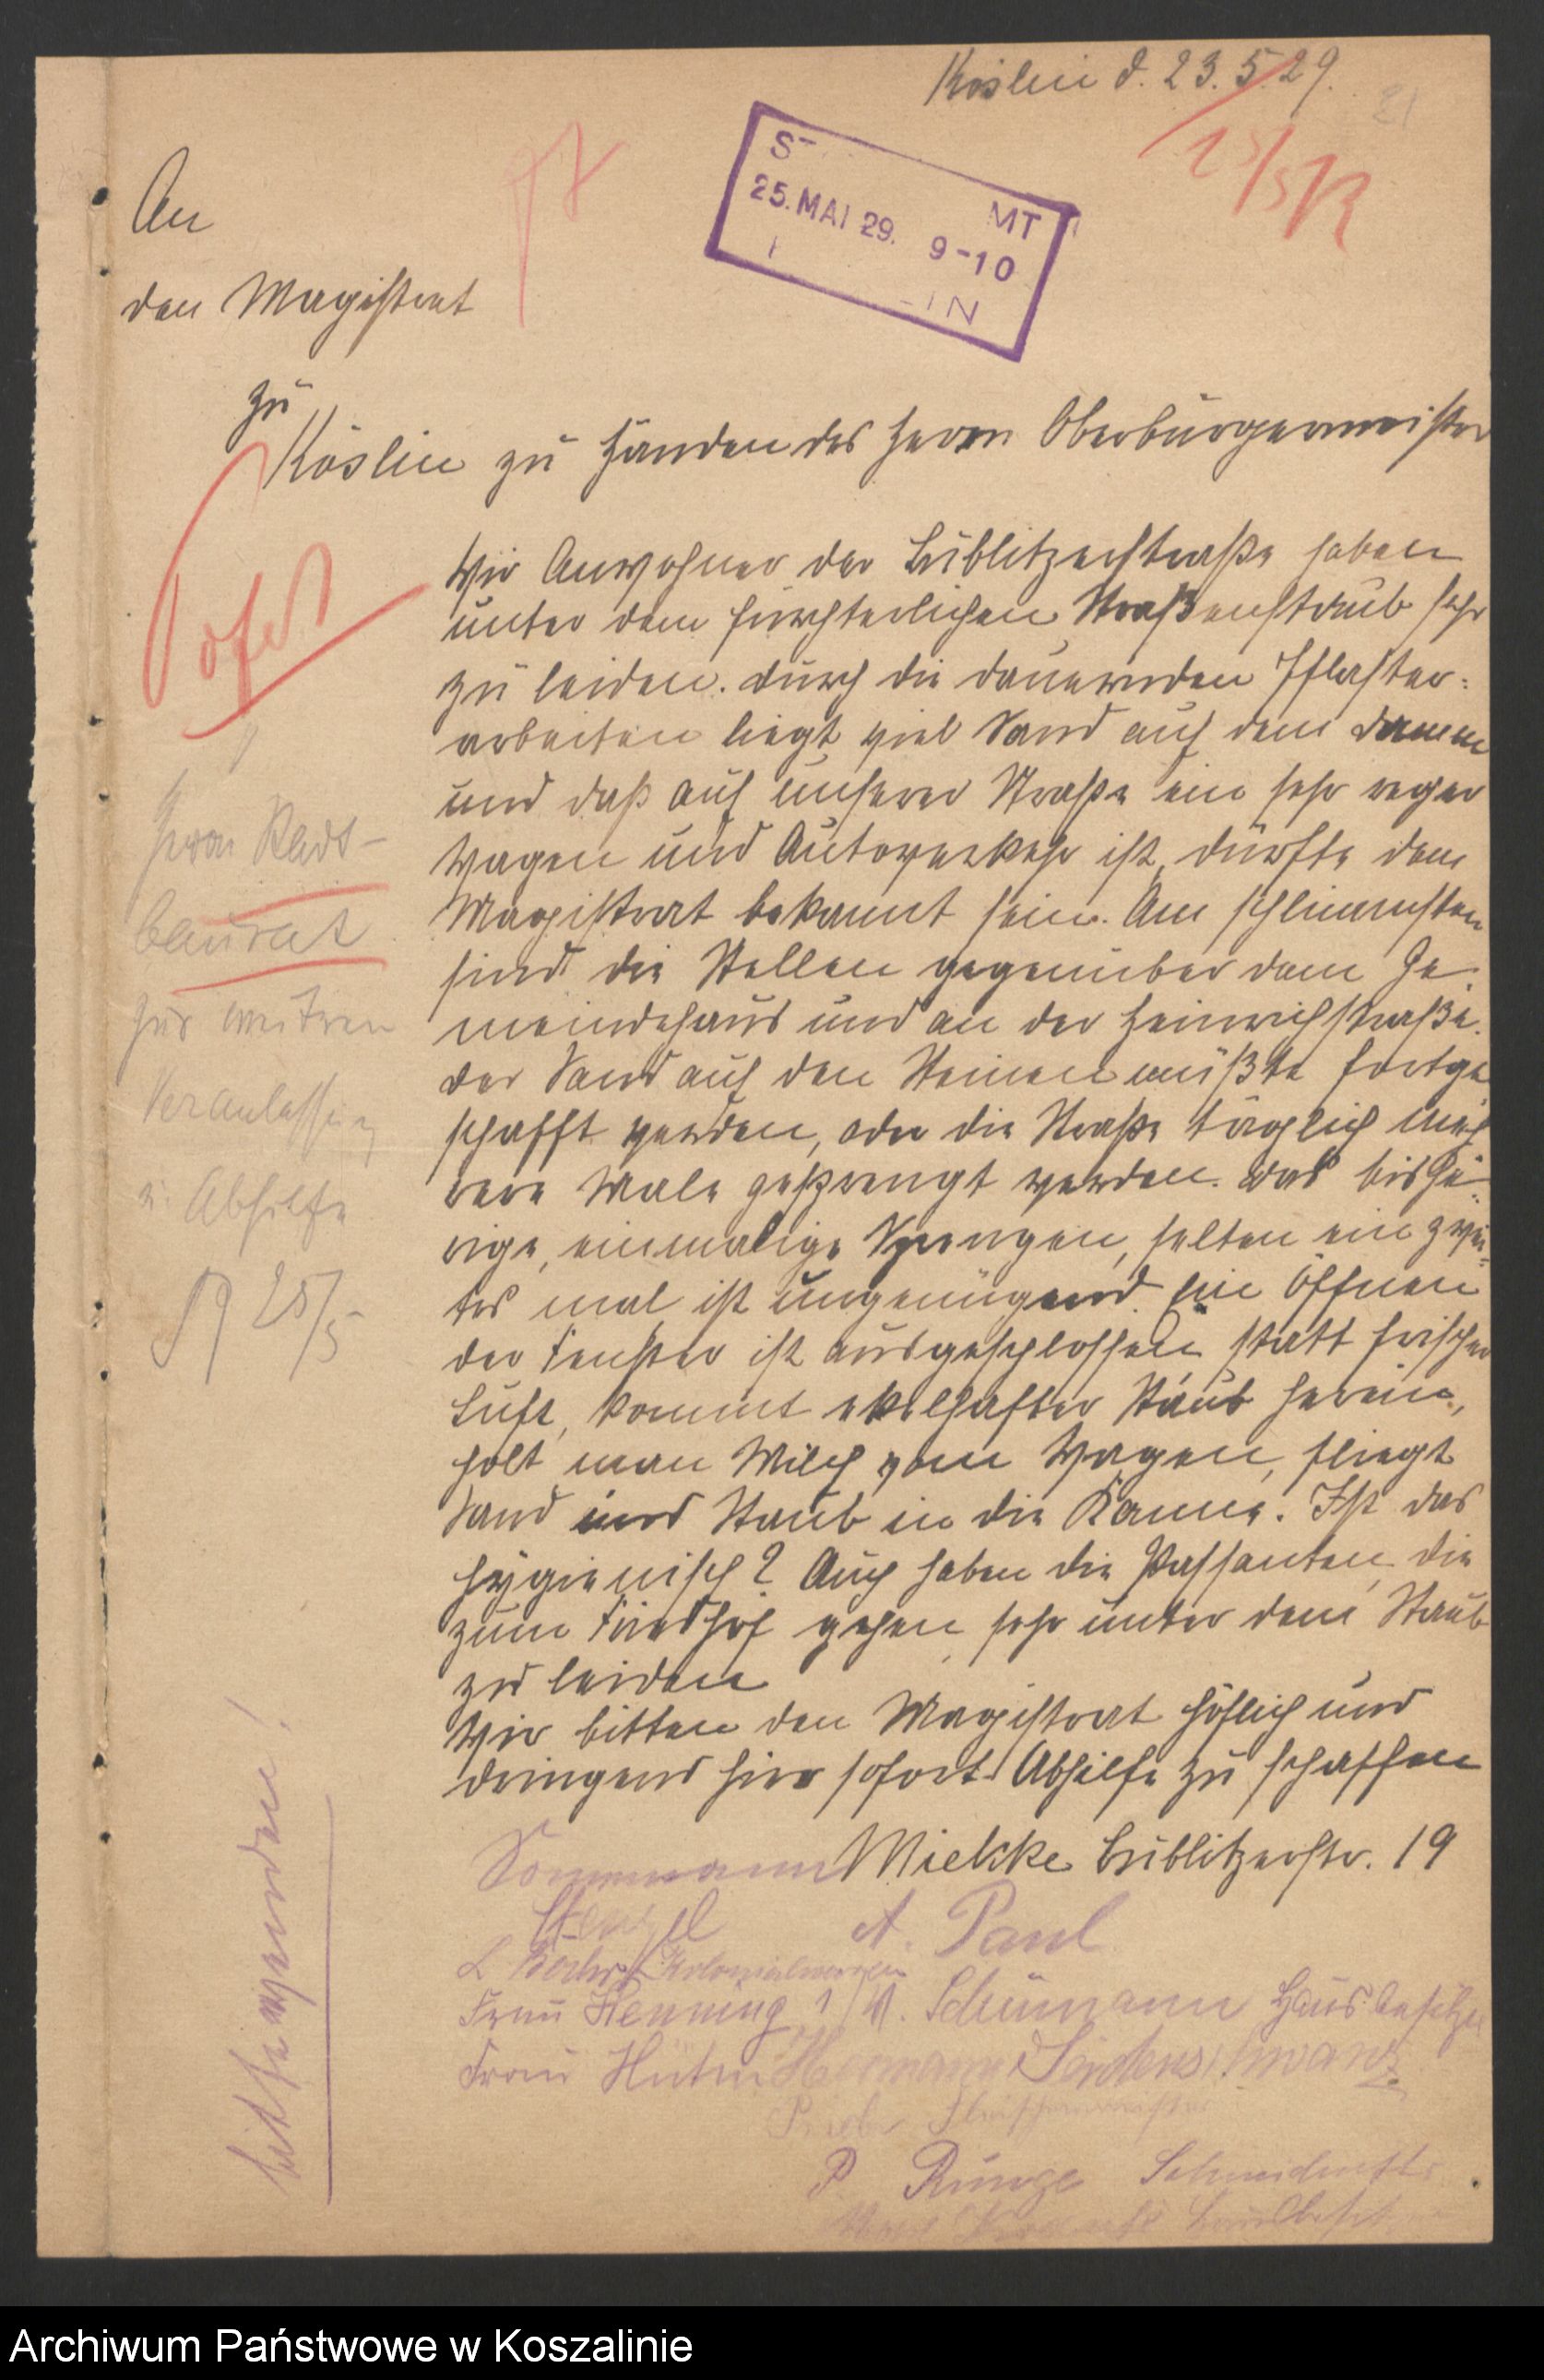 Köslin d. 23.5.29.
25. MAI 29. 9-10
An
den Magistrat
zu
Köslin zu Händen des Herrn Oberbürgermeister
Wir Anwohner der Bublitzerstraße haben
unter dem fürchterlichen Straßenstaub sehr
zu leiden. durch die dauernden Pflaster-
arbeiten liegt viel Sand auf dem Damm
und daß auf unserer Straße ein sehr reger
Wagen und Autoverkehr ist, dürfte dem
Magistrat bekannt sein. Am schlimmsten
sind die Stellen gegenüber dem Ge-
meindehaus und an der Heinrichstraße.
der Sand auf den Steinen müßte fortge
schafft werden, oder die Straße täglich meh
rere Male gesprengt werden. das bishe-
rige, einmalige Sprengen, selten ein zwei-
tes mal ist ungenügend. Ein Öffnen
der Fenster ist ausgeschlossen statt frischer
Luft, kommt ekelhafter Staub herein,
holt man Milch vom Wagen, fliegt
Sand und Staub in die Kanne. Ist das
hygienisch? Auch haben die Passanten, die
zum Friedhof gehen, sehr unter dem Staub
zu leiden
Wir bitten den Magistrat höflich und
dringend hier sofort Abhilfe zu schaffen
Mielkke Bublitzerstr. 19
Sommmann
Stenzel A. Paul
Kolonialwaren
Frau Henning Schümann Hausbesitzer
Frau Hermann
Fleischermeister
P Runge
Herrn Stadt-
baurat
zur weitren
Veranlassung
u. Abhilfe
25/5
bitte wenden!
Archiwum Państwowe w Koszalinie